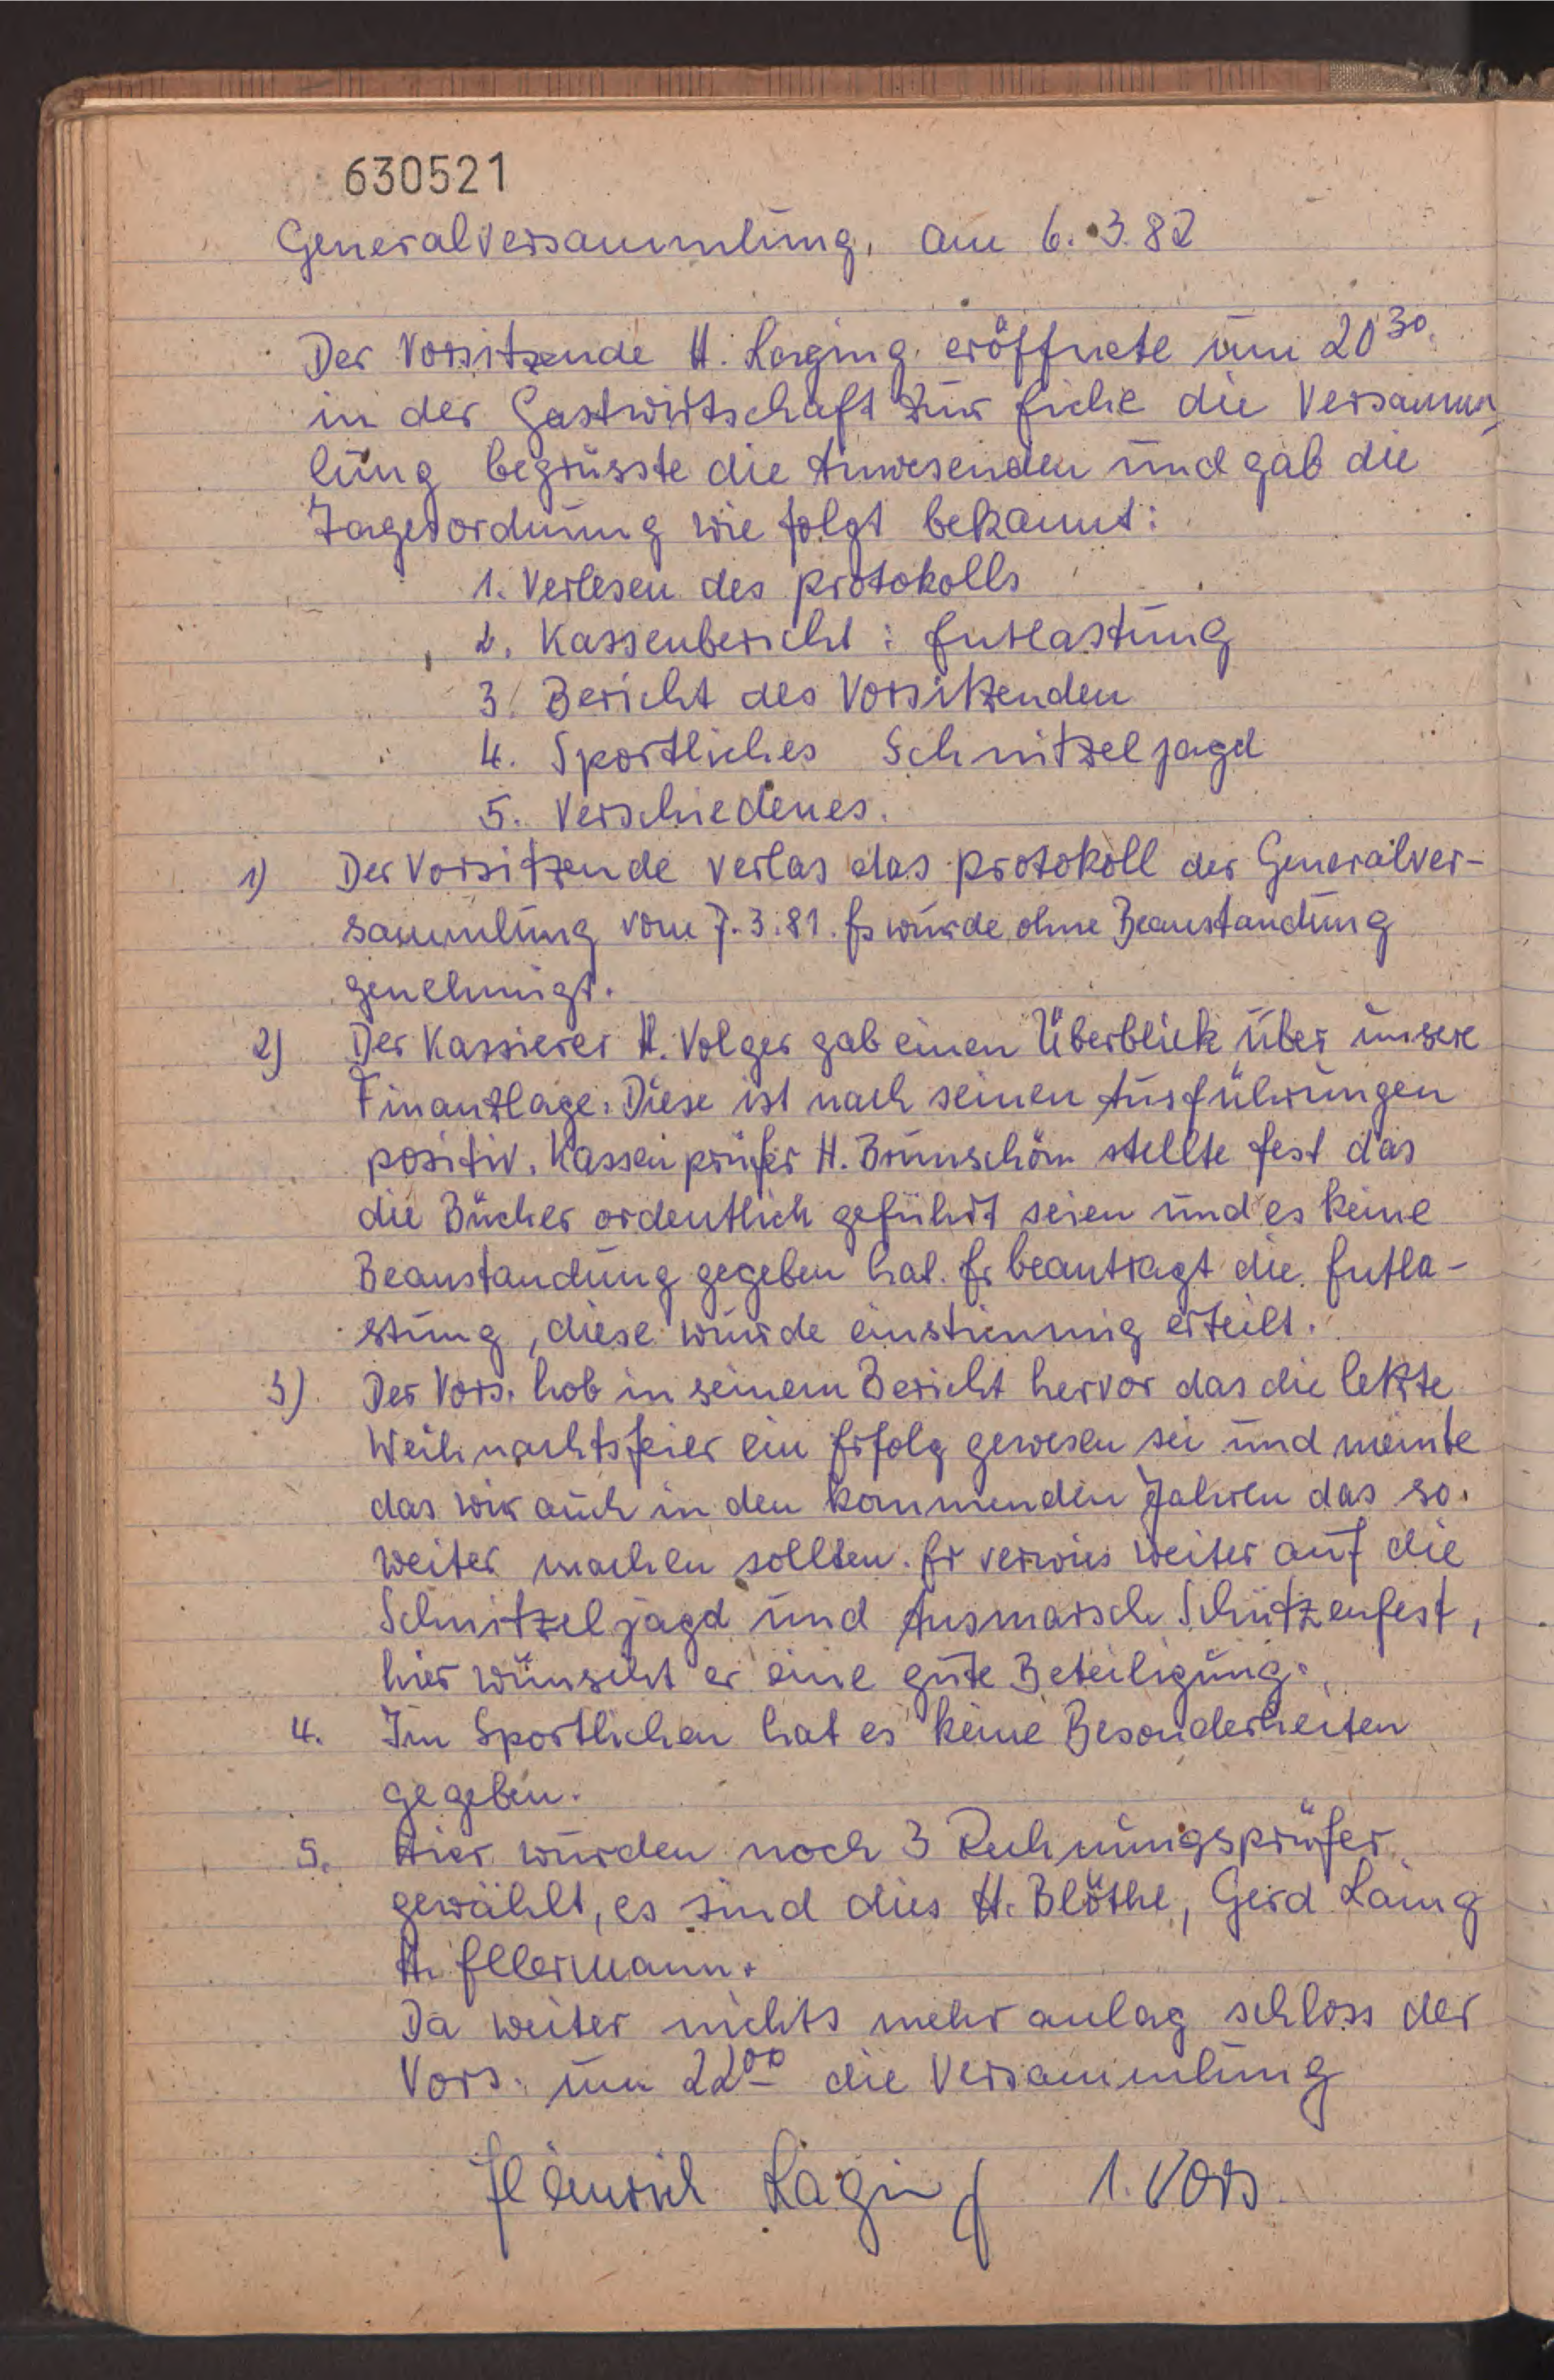 630521
Generalversammlung, am 6.3.82
Der Vorsitzende H. Laging eröffnete um 20³⁰
in der Gastwirtschaft zur Eiche die Versamm-
lung begrüsste die Anwesenden und gab die
Tagesordnung wie folgt bekannt:
1. Verlesen des Protokolls
2. Kassenbericht: Entlastung
3. Bericht des Vorsitzenden
4. Sportliches Schnitzeljagd
5. Verschiedenes.
1) Der Vorsitzende verlas das Protokoll der Generalver-
sammlung vom 7.3.81. Es wurde ohne Beanstandung
genehmigt.
2) Der Kassierer H. Volger gab einen Überblick über unsere
Finanzlage. Diese ist nach seinen Ausführungen
positiv. Kassenprüfer H. Brunschön stellte fest das
die Bücher ordentlich geführt seien und es keine
Beanstandung gegeben hat. Er beantragt die Entla-
stung, diese wurde einstimmig erteilt.
3) Der Vors. hob in seinem Bericht hervor das die letzte
Weihnachtsfeier ein Erfolg gewesen sei und meinte
das wir auch in den kommenden Jahren das so
weiter machen sollten. Er verwies weiter auf die
Schnitzeljagd und Ausmarsch Schützenfest,
hier wünscht er eine gute Beteiligung.
4. Im Sportlichen hat es keine Besonderheiten
gegeben.
5. Hier wurden noch 3 Rechnungsprüfer
gewählt, es sind dies H. Blöthe, Gerd Laing
H. Ellermann.
Da weiter nichts mehr anlag schloss der
Vors. um 22⁰⁰ die Versammlung
Heinrich Laging 1. Vors